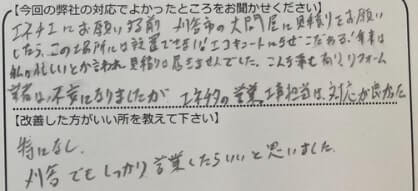 【今回の弊社の対応でよかったところをお聞かせください】
エネチタにお願いする前 刈谷市の大問屋に見積りをお願い
したら、この場所には設置できない！エコキュートになぜこだわる！年末は
私が忙しいとか言われ見積り届きませんでした。こんな事も有り、リフォーム
業者は不安になりましたが エネチタの営業、工事担当は、対応が良かった
【改善した方がいい所を教えて下さい】
特になし、
刈谷でもしっかり営業したらいいと思いました。